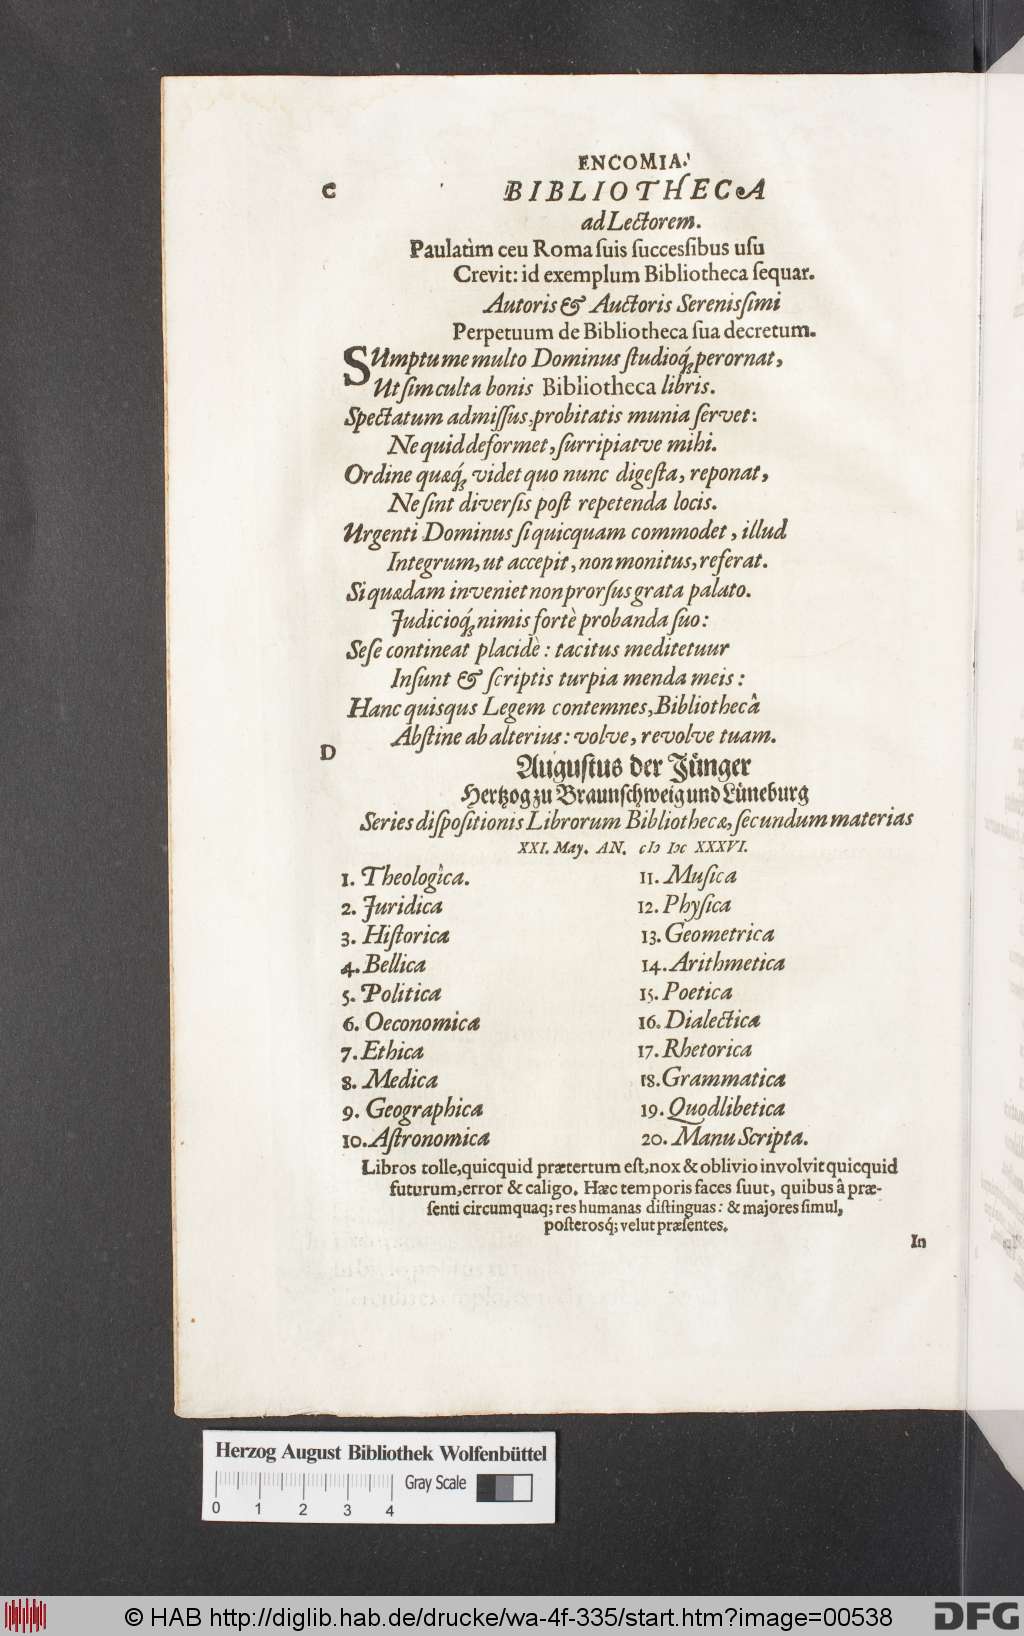 ENCOMIA.
C
BIBLIOTHECA
ad Lectorem.
Paulatìm ceu Roma suis successibus usu
Crevit: id exemplum Bibliotheca sequar.
Autoris & Auctoris Serenissimi
Perpetuum de Bibliotheca sua decretum.
SUmptu me multo Dominus studioq́; perornat,
Ut sim culta bonis Bibliotheca libris.
Spectatum admissus, probitatis munia servet:
Ne quid deformet, surripiatve mihi.
Ordine quæq́; videt quo nunc digesta, reponat,
Ne sint diversis post repetenda locis.
Urgenti Dominus si quicquam commodet, illud
Integrum, ut accepit, non monitus, referat.
Si quædam inveniet non prorsus grata palato.
Judicioq́; nimis fortè probanda suo:
Sese contineat placidè: tacitus meditetuur
Insunt & scriptis turpia menda meis:
Hanc quisqus Legem contemnes, Bibliothecâ
Abstine ab alterius: volve, revolve tuam.
D
Augustus der Jünger
Hertzog zu Braunschweig und Lüneburg
Series dispositionis Librorum Bibliothecæ, secundum materias
XXI. May. AN. cIↄ Iↄc XXXVI.
1. Theologica.
2. Juridica
3. Historica
4. Bellica
5. Politica
6. Oeconomica
7. Ethica
8. Medica
9. Geographica
10. Astronomica
11. Musica
12. Physica
13. Geometrica
14. Arithmetica
15. Poetica
16. Dialectica
17. Rhetorica
18. Grammatica
19. Quodlibetica
20. Manu Scripta.
Libros tolle, quicquid prætertum est, nox & oblivio involvit quicquid
futurum, error & caligo. Hæc temporis faces suut, quibus â præ-
senti circumquaq; res humanas distinguas: & majores simul,
posterosq́; velut præsentes.
In
Herzog August Bibliothek Wolfenbüttel
Gray Scale
0 1 2 3 4
© HAB http://diglib.hab.de/drucke/wa-4f-335/start.htm?image=00538
DFG